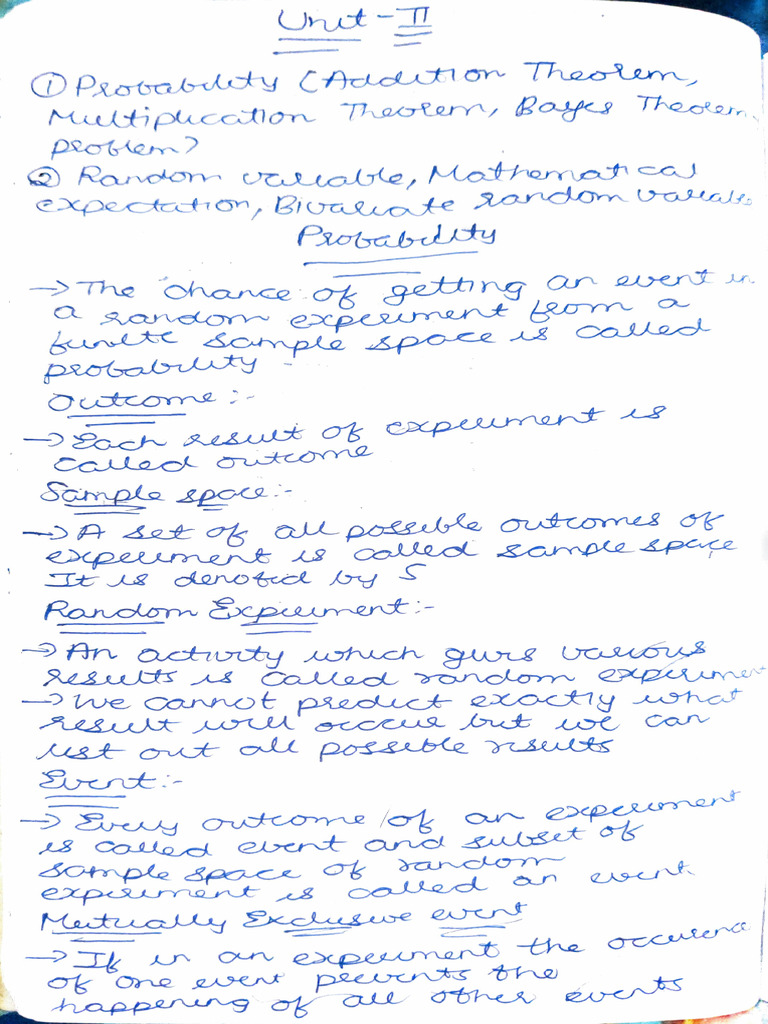 Unit - II
① Probability (Addition Theorem,
Multiplication Theorem, Bayes Theorem
problem)
② Random variable, Mathematical
expectation, Bivariate random variables
Probability
→ The chance of getting an event in
a random experiment from a
finite sample space is called
probability.
Outcome :-
→ Each result of experiment is
called outcome
Sample space:-
→ A set of all possible outcomes of
experiment is called sample space
It is denoted by S
Random Experiment:-
→ An activity which gives various
results is called random experiment
→ We cannot predict exactly what
result will occur but we can
list out all possible results
Event:-
→ Every outcome of an experiment
is called event and subset of
sample space of random
experiment is called an event.
Mutually Exclusive event
→ If in an experiment the occurence
of one event prevents the
happening of all other events